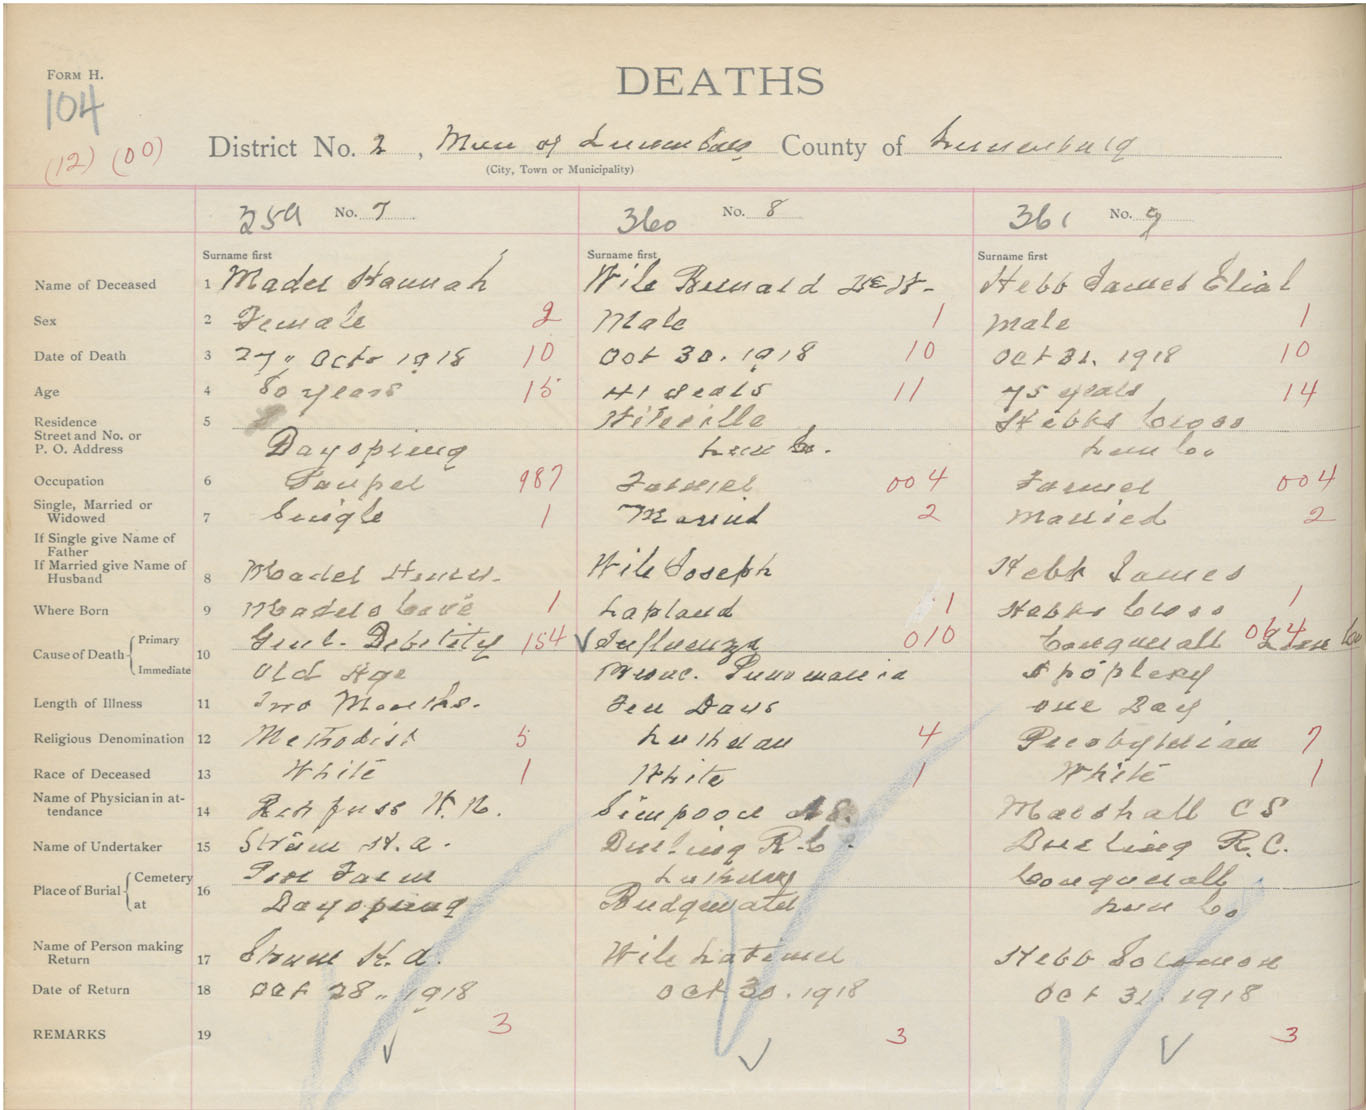 FORM H.
DEATHS
104
(12) (00)
District No. 2, Mun of Lunenburg County of Lunenburg
(City, Town or Municipality)
359 No. 7 360 No. 8 361 No. 9
Surname first Surname first Surname first
Name of Deceased 1 Mader Hannah Wile Bernard Hebb James Elial
Sex 2 Female 2 Male 1 Male 1
Date of Death 3 27" Octo 1918 10 Oct 30. 1918 10 Oct 31. 1918 10
Age 4 80 years 15 41 years 11 75 years 14
Residence 5 Wileville Hebbs Cross
Street and No. or
P. O. Address Dayspring Lun Co. Lun Co
Occupation 6 Pauper 987 Farmer 004 Farmer 004
Single, Married or
Widowed 7 Single 1 Married 2 Married 2
If Single give Name of
Father
If Married give Name of
Husband 8 Mader Wile Joseph Hebb James
Where Born 9 Maders Cove 1 Lapland 1 Hebbs Cross 1
Cause of Death Primary 10 Genl. Debility 154 Influenza 010 Conquerall 064 Lun Co
Immediate Old Age Pneumonia Apoplexy
Length of Illness 11 Two Months. Ten Days One Day
Religious Denomination 12 Methodist 5 Lutheran 4 Presbyterian 7
Race of Deceased 13 White 1 White 1 White 1
Name of Physician in at-
tendance 14 Rehfuss W. N. Simpson Marshall C S
Name of Undertaker 15 Strum H. A. Dauling R. C. Dauling R. C.
Place of Burial Cemetery 16 Poor Farm Lutheran Conquerall
at Dayspring Bridgewater Lun Co
Name of Person making
Return 17 Strum H. A. Wile Latimer Hebb Solomon
Date of Return 18 Oct 28" 1918 Oct 30. 1918 Oct 31. 1918
REMARKS 19 3 3 3